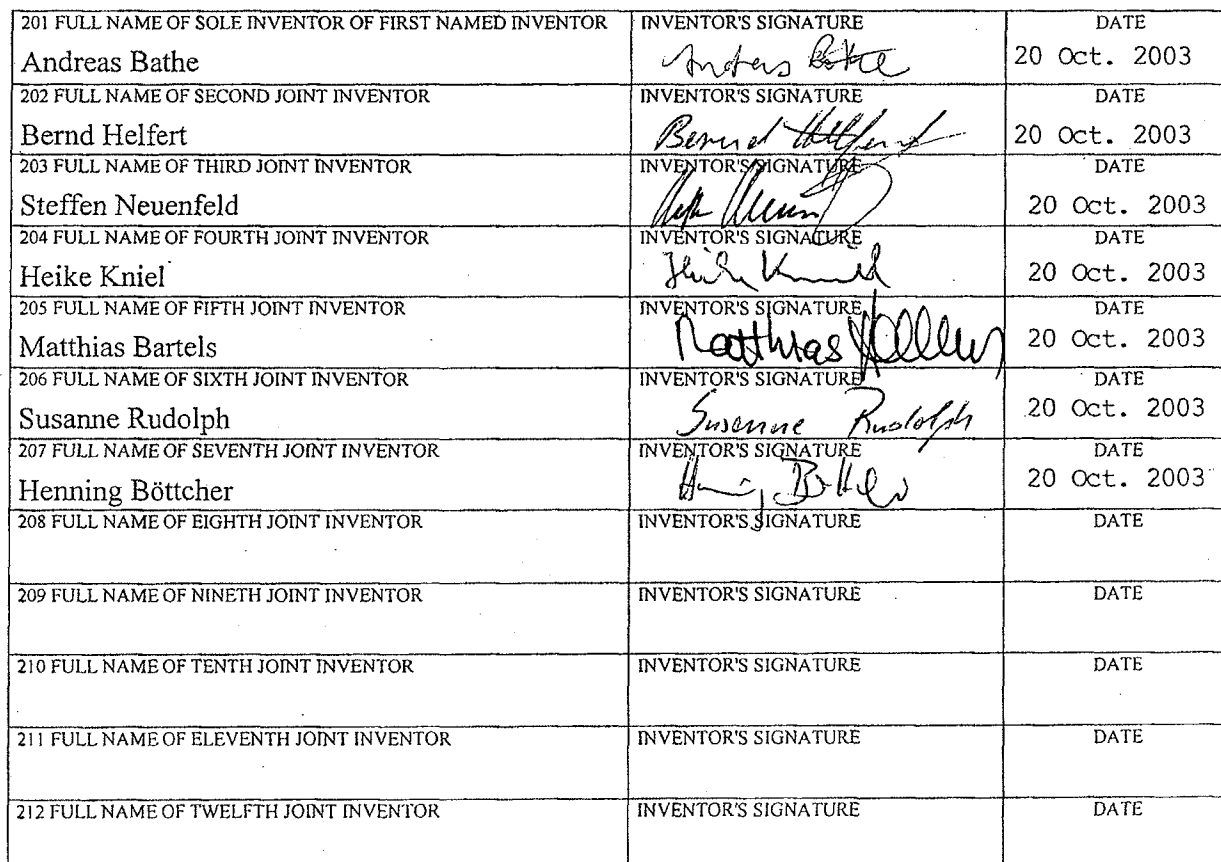 201 FULL NAME OF SOLE INVENTOR OF FIRST NAMED INVENTOR INVENTOR'S SIGNATURE DATE
Andreas Bathe Andreas Bathe 20 Oct. 2003
202 FULL NAME OF SECOND JOINT INVENTOR INVENTOR'S SIGNATURE DATE
Bernd Helfert Bernd Helfert 20 Oct. 2003
203 FULL NAME OF THIRD JOINT INVENTOR INVENTOR'S SIGNATURE DATE
Steffen Neuenfeld 20 Oct. 2003
204 FULL NAME OF FOURTH JOINT INVENTOR INVENTOR'S SIGNATURE DATE
Heike Kniel Heike Kniel 20 Oct. 2003
205 FULL NAME OF FIFTH JOINT INVENTOR INVENTOR'S SIGNATURE DATE
Matthias Bartels Matthias 20 Oct. 2003
206 FULL NAME OF SIXTH JOINT INVENTOR INVENTOR'S SIGNATURE DATE
Susanne Rudolph Susanne Rudolph 20 Oct. 2003
207 FULL NAME OF SEVENTH JOINT INVENTOR INVENTOR'S SIGNATURE DATE
Henning Böttcher 20 Oct. 2003
208 FULL NAME OF EIGHTH JOINT INVENTOR INVENTOR'S SIGNATURE DATE
209 FULL NAME OF NINETH JOINT INVENTOR INVENTOR'S SIGNATURE DATE
210 FULL NAME OF TENTH JOINT INVENTOR INVENTOR'S SIGNATURE DATE
211 FULL NAME OF ELEVENTH JOINT INVENTOR INVENTOR'S SIGNATURE DATE
212 FULL NAME OF TWELFTH JOINT INVENTOR INVENTOR'S SIGNATURE DATE